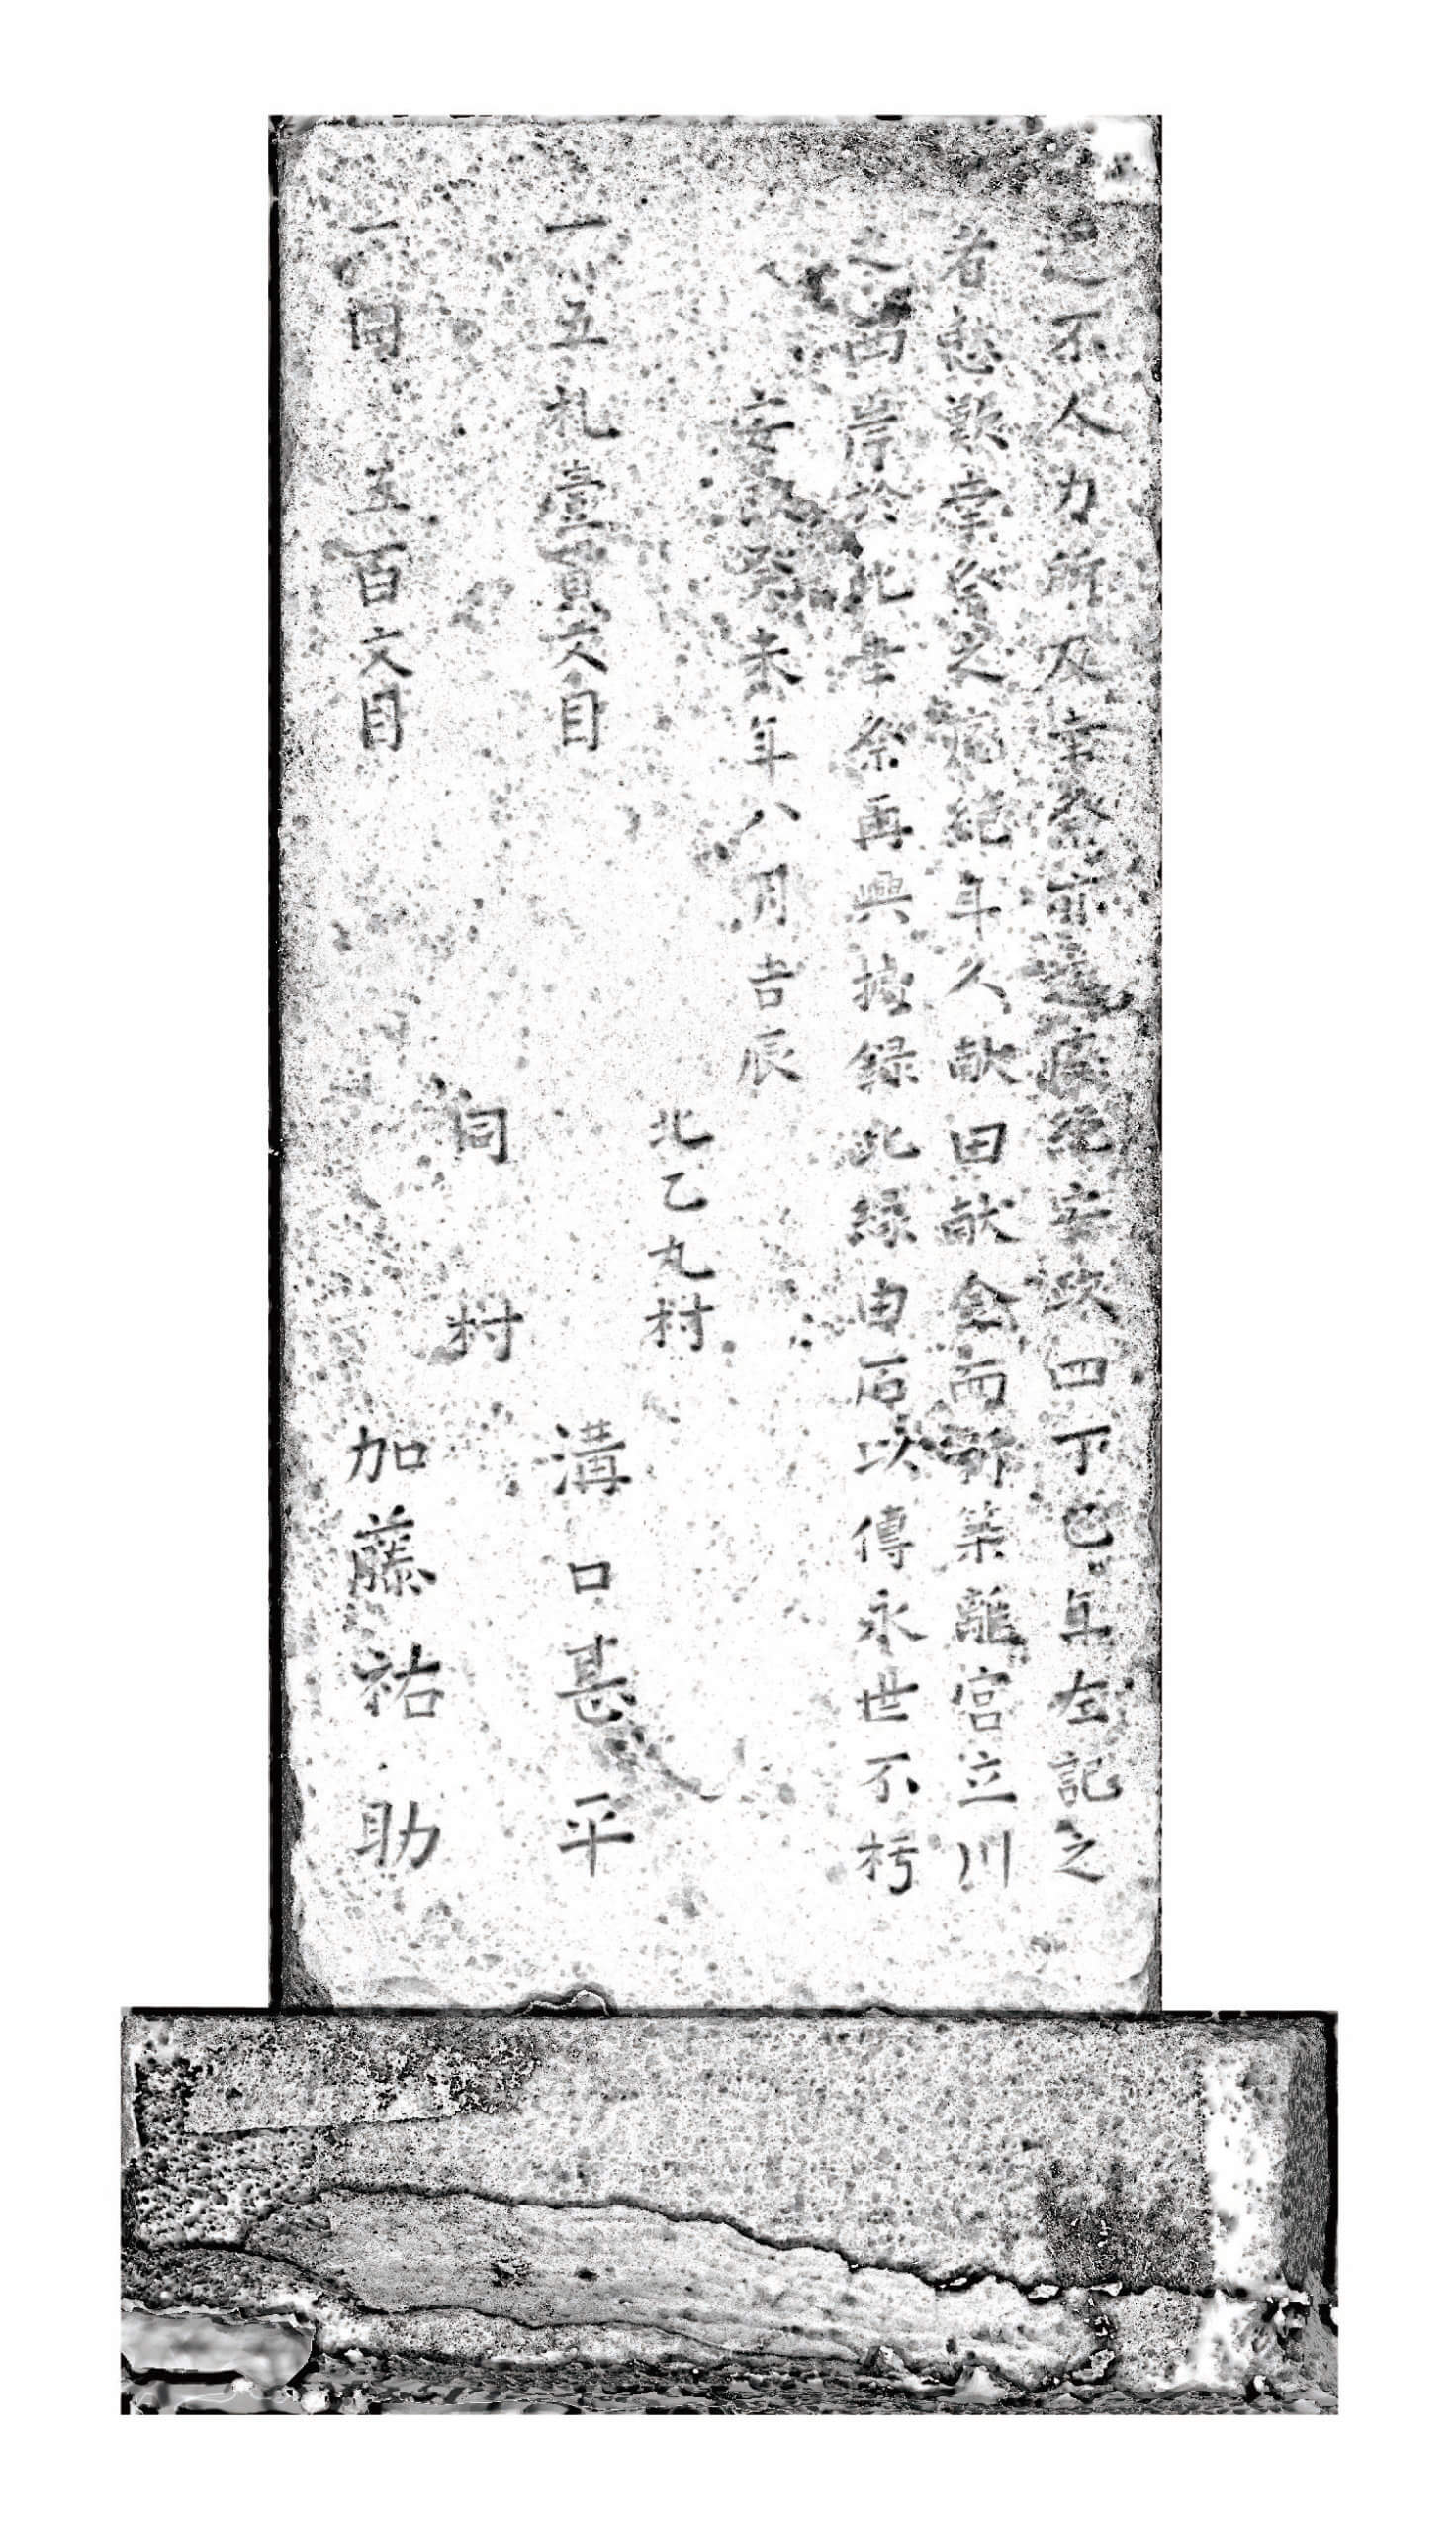 不人力所及幸祭前廢絶安政四丁巳年左記之
者愁歎幸祭之廃絶年久献曰献金而新築離宮立川
之両岸於此幸祭再興録此縁由石以傳永世不朽
安未年八月吉辰
北乙丸村
一五札壹貫文目 溝口甚平
同村
一同五百文目 加藤祐助